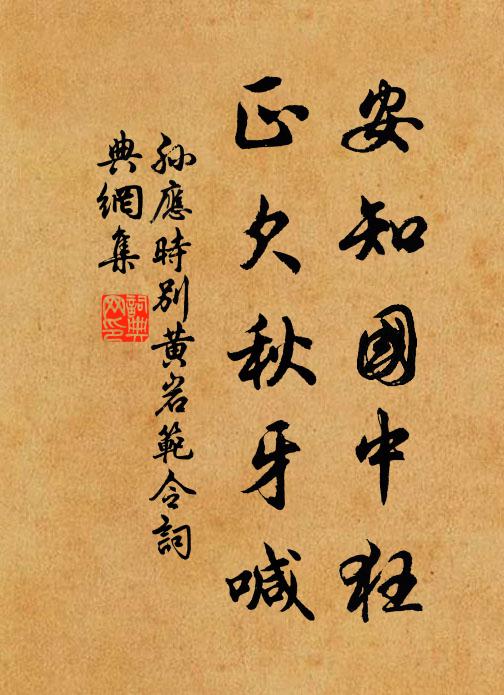 安知國中狂
正欠秋牙喊
孫應時別黃岩範令詞
典網集
詞典網印